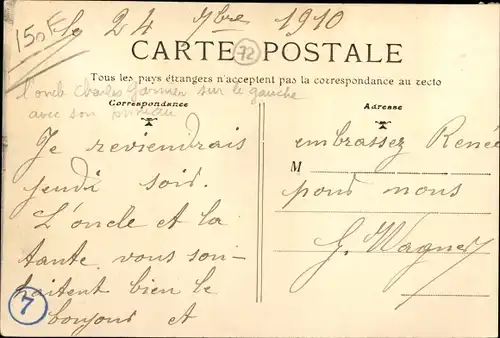 150F
le 24 7bre 1910
CARTE POSTALE
72
Tous les pays étrangers n'acceptent pas la correspondance au recto
l'oncle Charles Garnier sur la gauche
avec son
Correspondance
Adresse
Je reviendrais
jeudi soir.
L'oncle et la
tante vous sou-
haitent bien le
bonjour et
7
embrassez Renee
M
pour nous
G. Wagner